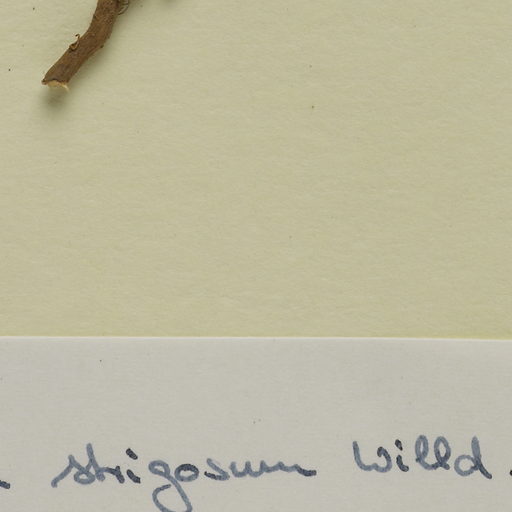 strigosum Willd.